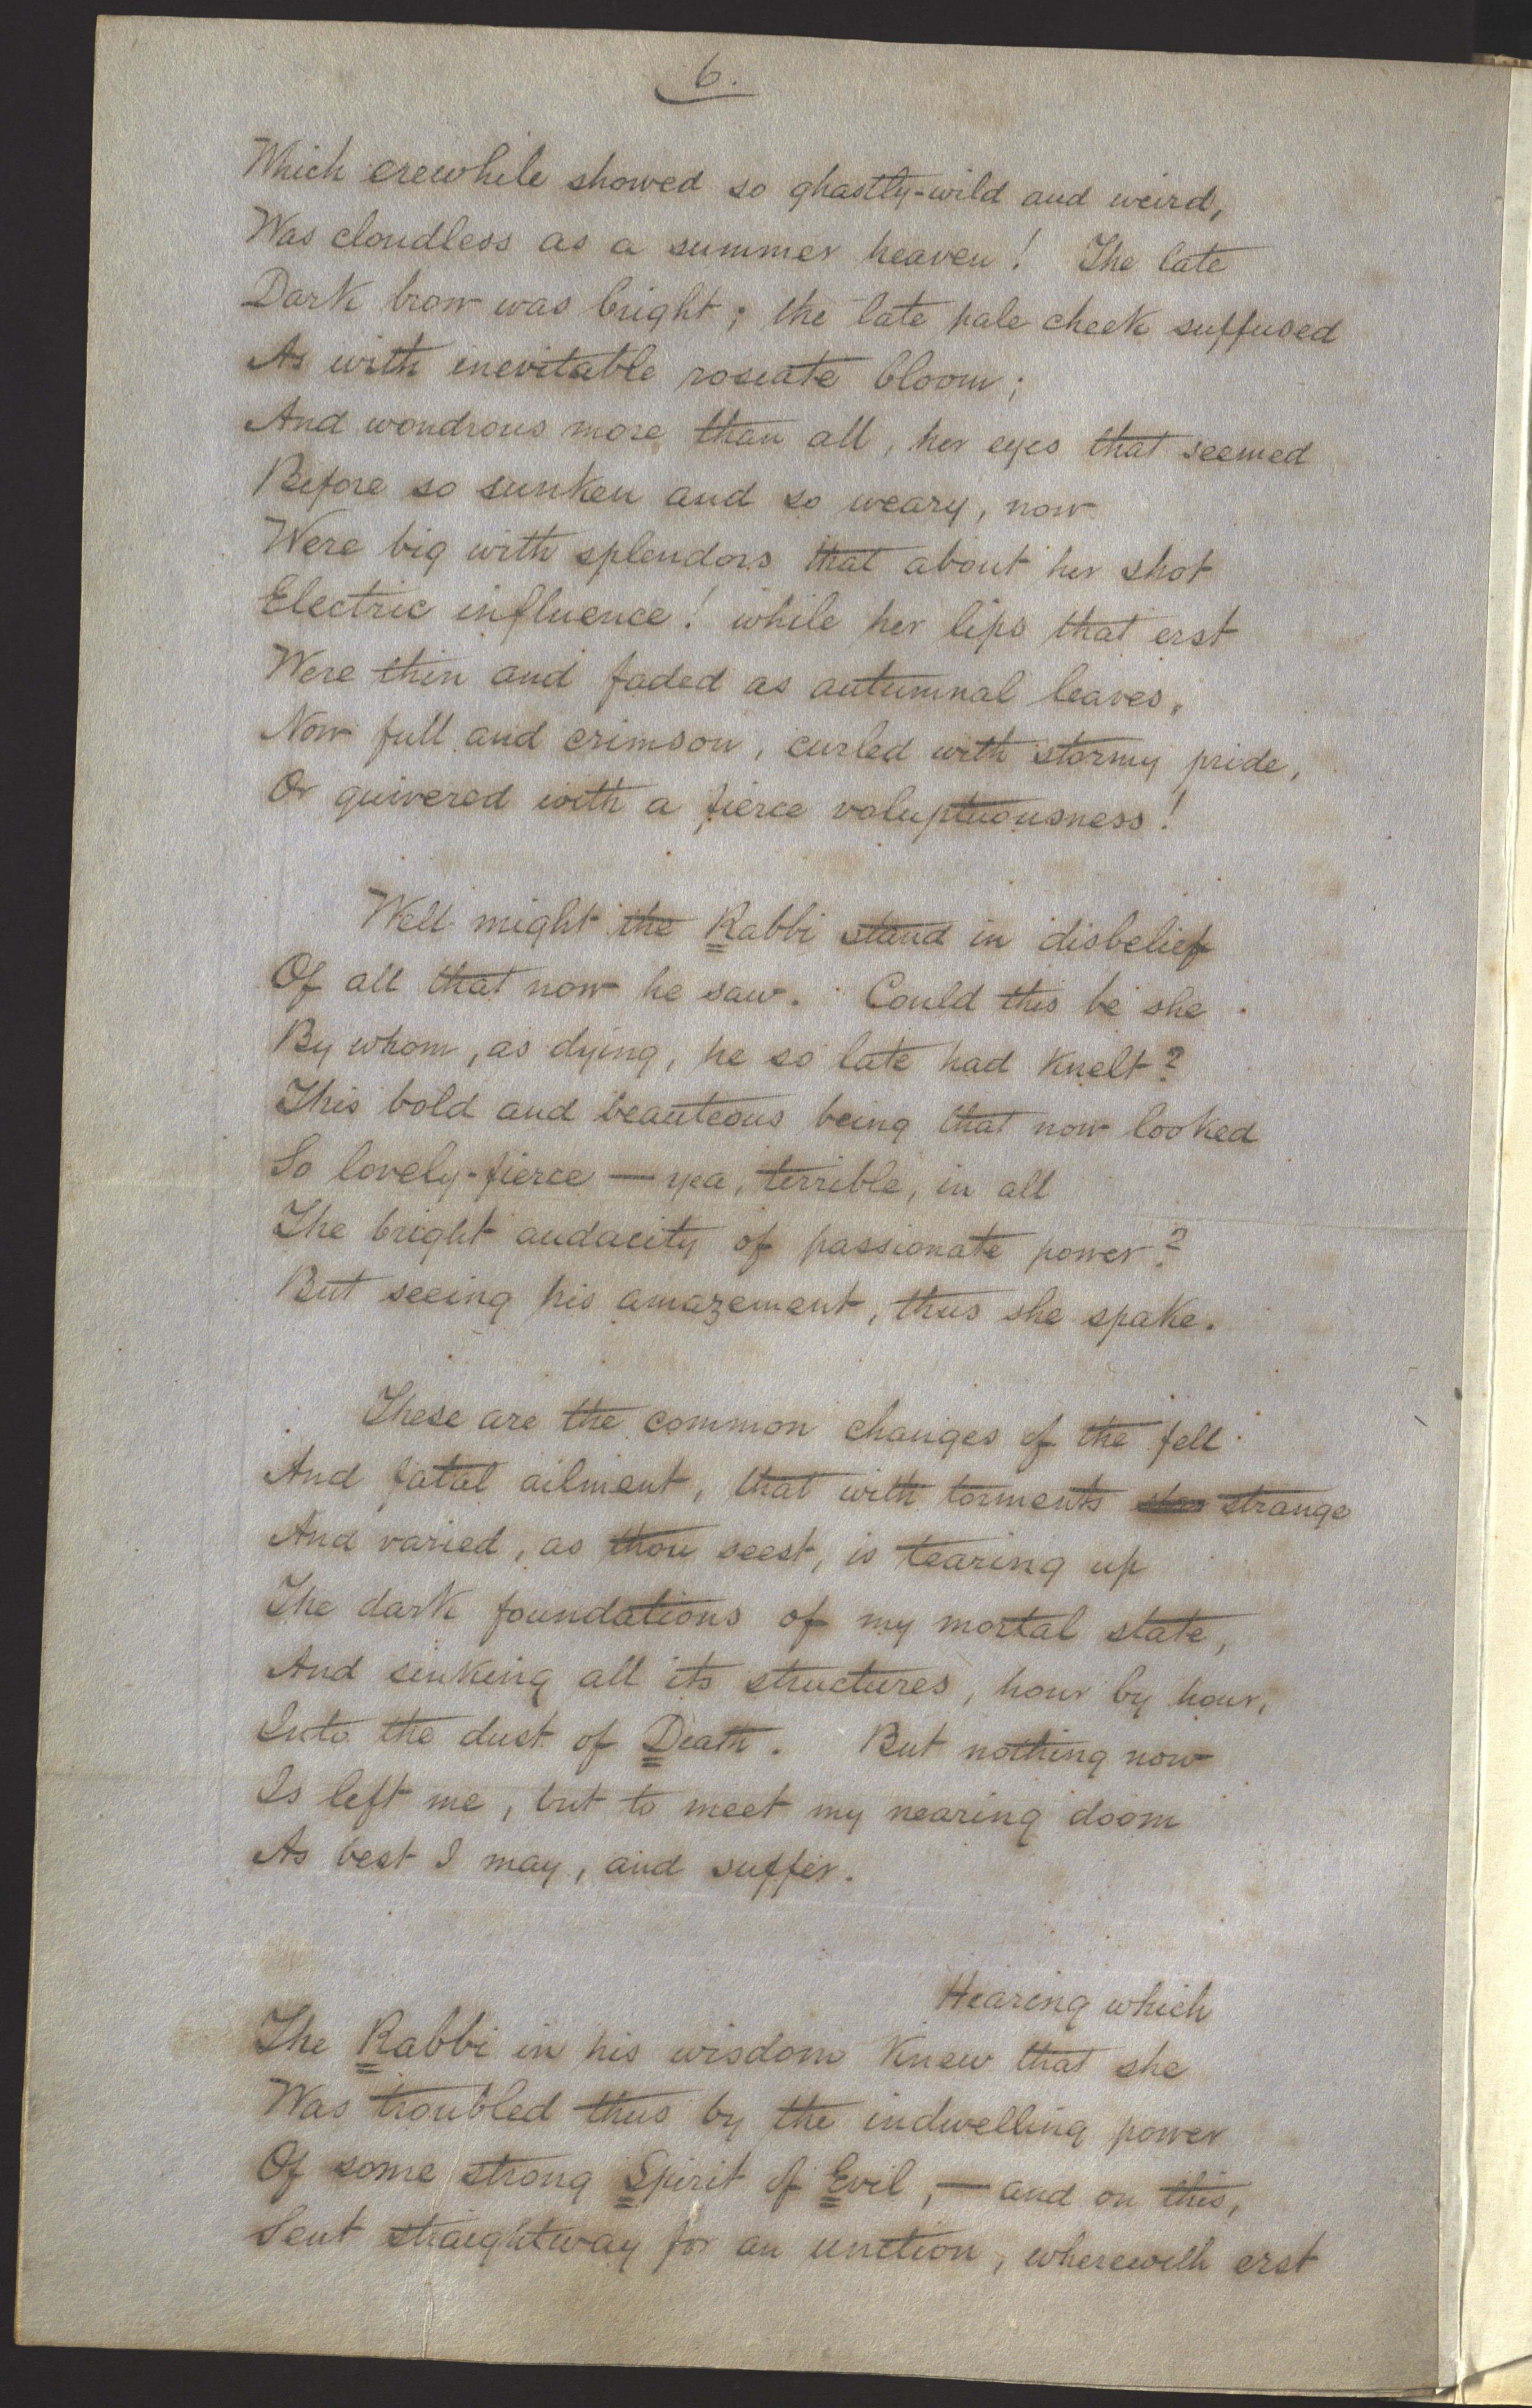 6.
Which erewhile showed so ghastly-wild and weird,
Was cloudless as a summer heaven! The late
Dark brow was bright; the late pale cheek suffused
As with inevitable roseate bloom;
And wondrous more than all, her eyes that seemed
Before so sunken and so weary, now
Were big with splendors that about her shot
Electric influence! while her lips that erst
Were thin and faded as autumnal leaves,
Now full and crimson, curled with stormy pride,
Or quivered with a fierce voluptuousness!
Well might the Rabbi stand in disbelief
Of all that now he saw. Could this be she
By whom, as dying, he so late had knelt?
This bold and beauteous being that now looked
So lovely-fierce — yea, terrible, in all
The bright audacity of passionate power?
But seeing his amazement, thus she spake.
These are the common changes of the fell
And fatal ailment, that with torments strange
And varied, as thou seest, is tearing up
The dark foundations of my mortal state,
And sinking all its structures, hour by hour,
Into the dust of Death. But nothing now
Is left me, but to meet my nearing doom
As best I may, and suffer.
Hearing which
The Rabbi in his wisdom knew that she
Was troubled thus by the indwelling power
Of some strong Spirit of Evil, — and on this,
Sent straightway for an unction, wherewith erst